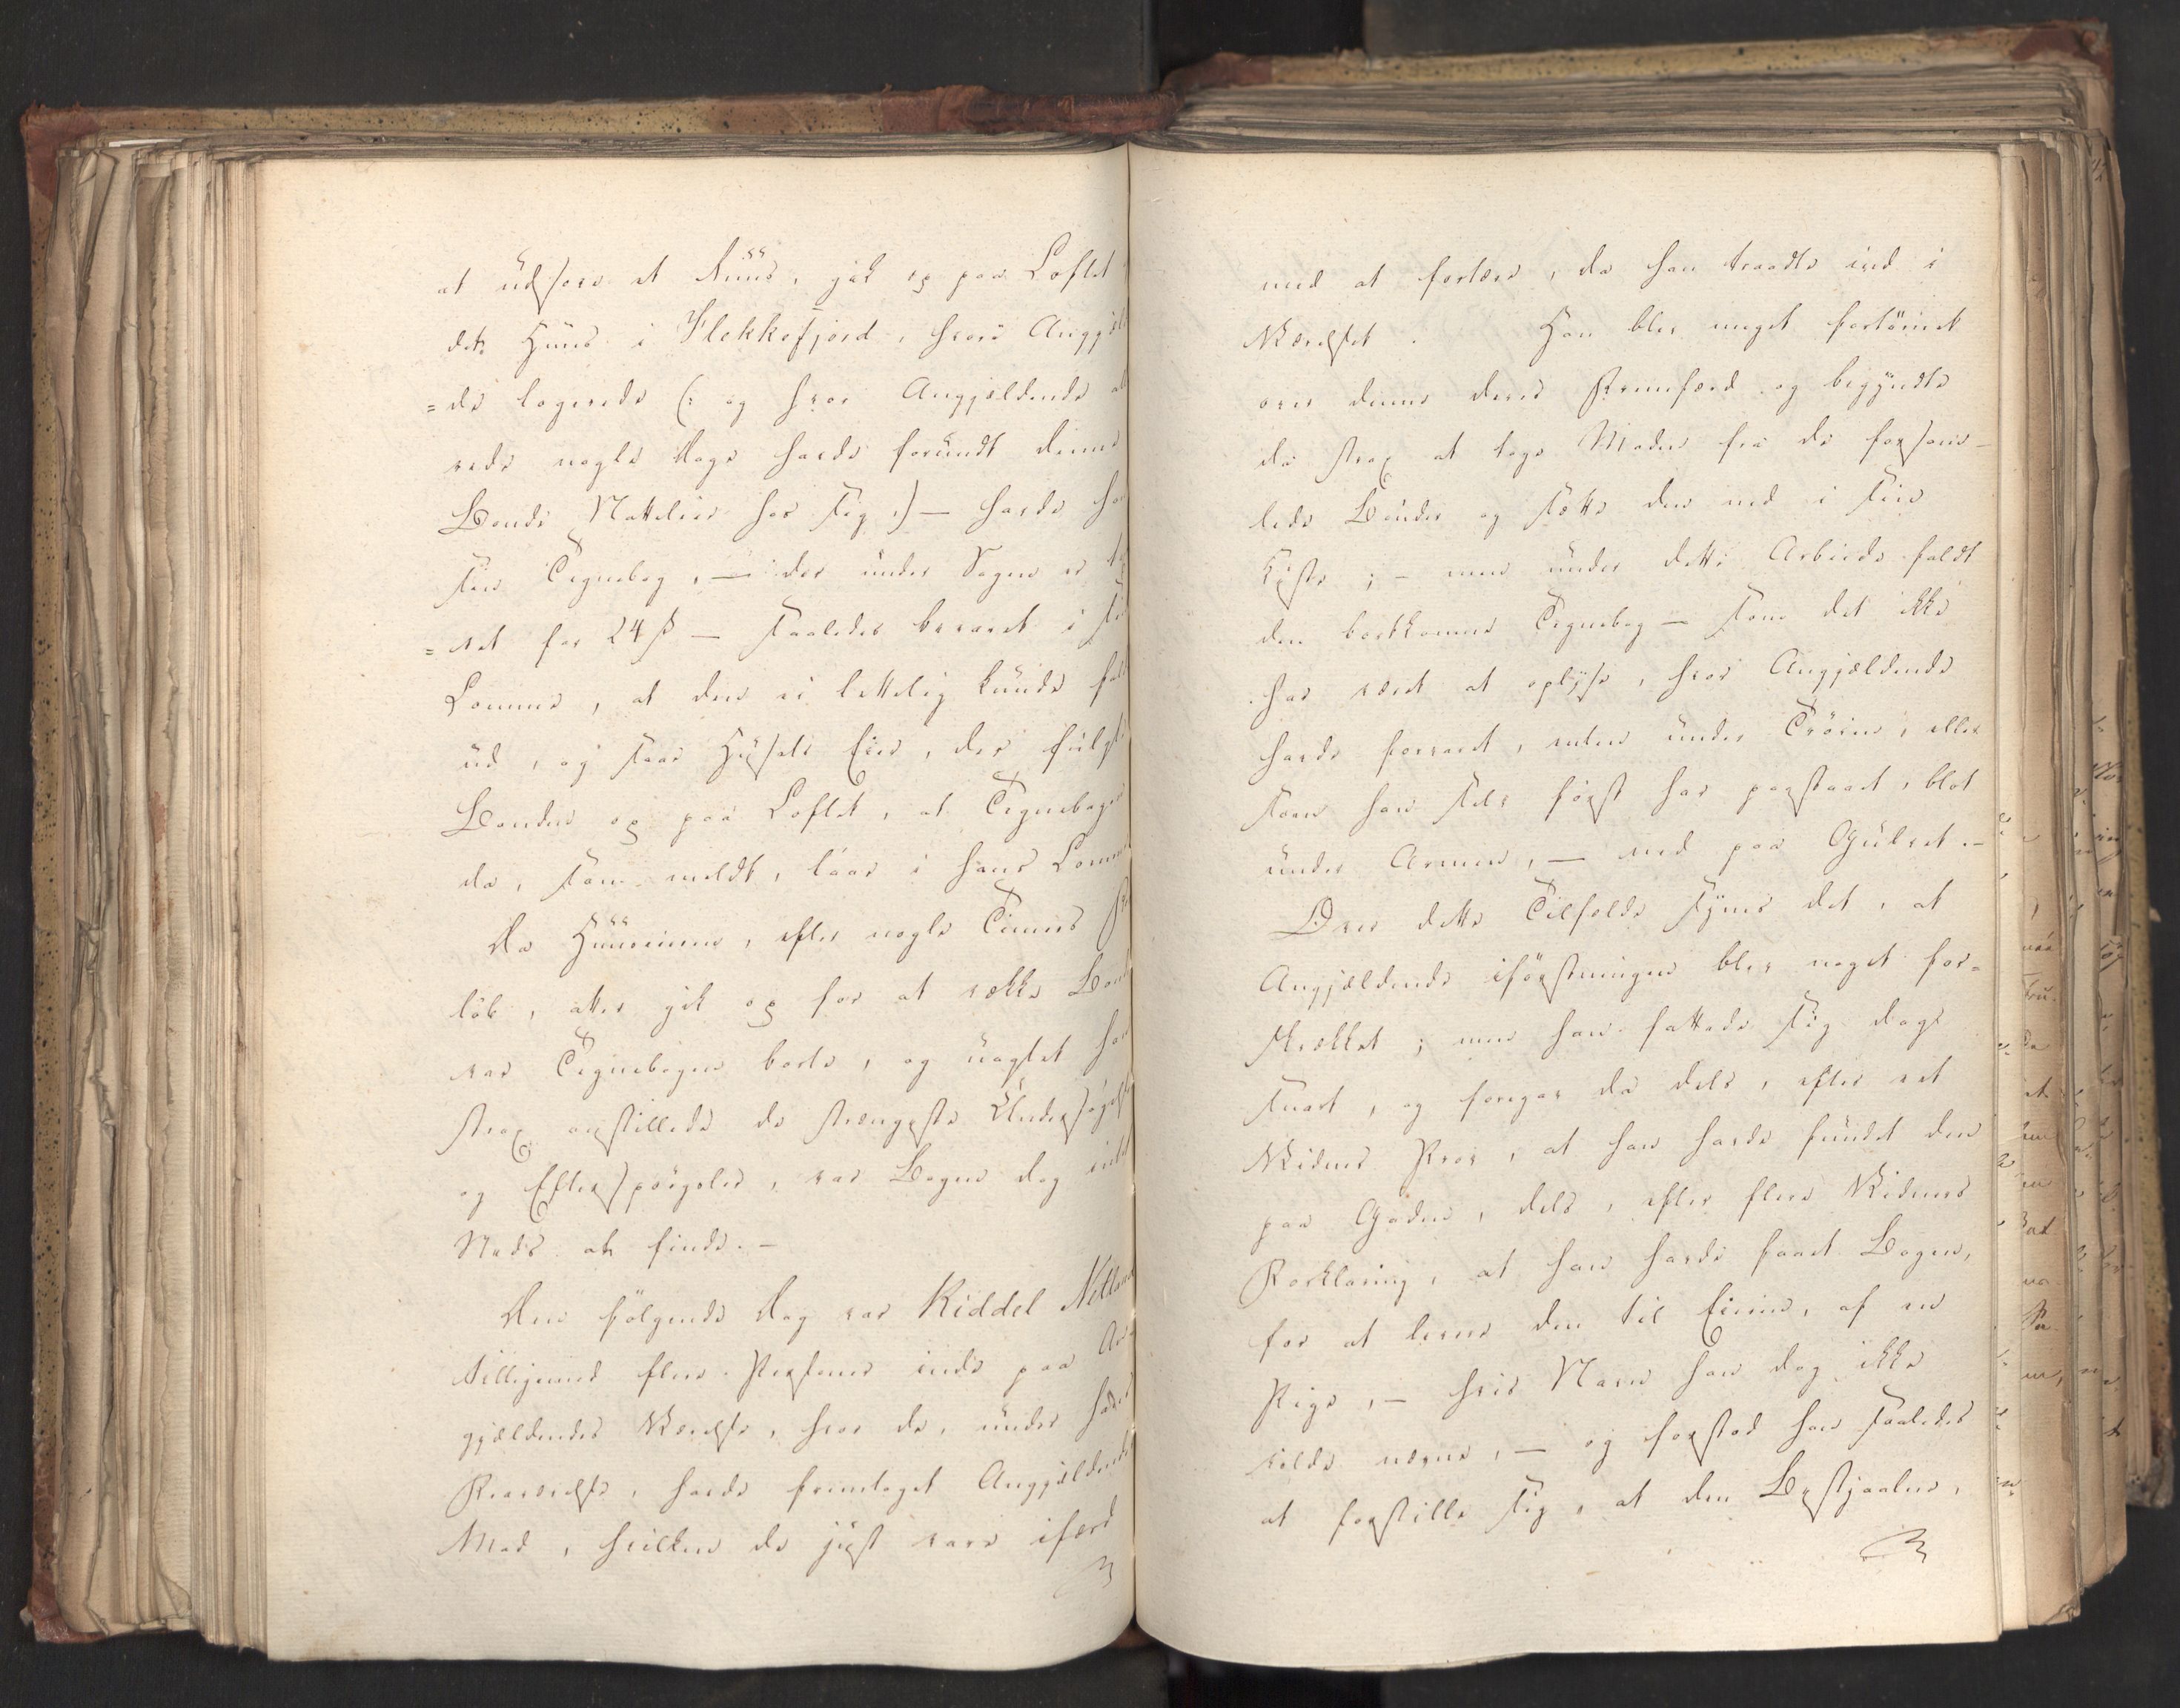 at udsove et Ruus, gik op paa Loftet
det Huus i Flekkefjord, hvori Anggjæl
=de logerede (: og hvor Angjældende al
rede nogle Dage havde forundt denne
Bonde Natteleie hos sig :) — havde han
sin Tegnebog, — der under Sagen er
=ret for 24 ß — saaledes bevaret i sin
Lomme, at den ei lettelig kunde falde
ud, og saae Husets Eier, der fulgte
Bonden op paa Loftet, at Tegnebogen
da, som meldt, laae i hans Lomme
Da Huuseieren, efter nogle Timers For
løb, atter gik op for at vække Bonden
var Tegnebogen borte, og uagtet han
strax anstillede de strængeste Undersøgelser
og Efterspørgsler, var Bogen dog intet
Steds at finde. —
Den følgende Dag var Riddel Netland
tilligemed flere Personer inde paa An-
gjældendes Værelse, hvor de, under hans
Fraværelse, havde fremtaget Angjældendes
Mad, hvilken de just vare ifærd
med at fortære, da han traadte ind i
Værelset. Han blev meget fortørnet
over denne deres Fremfærd og begyndte
da strax at tage Maden fra de forsam-
lede Bønder og sætte den ned i sin
Kiste; — men under dette Arbeide faldt
den bortkomne Tegnebog — som det ikke
har været at oplyse, hvor Angjældende
havde forvaret, enten under Trøien, eller
som han selv først har paastaaet, blot
under Armen, — ned paa Gulvet. —
Over dette Tilfælde synes det, at
Angjældende iførstningen blev noget for-
skrækket; men han fattede sig dog
snart, og foregav da dels, efter eet
Vidnes Prov, at han havde fundet den
paa Gaden, dels, efter flere Vidners
Forklaring, at han havde faaet Bogen,
for at levere den til Eieren, af en
Pige, — hvis Navn han dog ikke
vilde nævne, — og forstod han saaledes
at forstille sig, at den Bestjaalne,